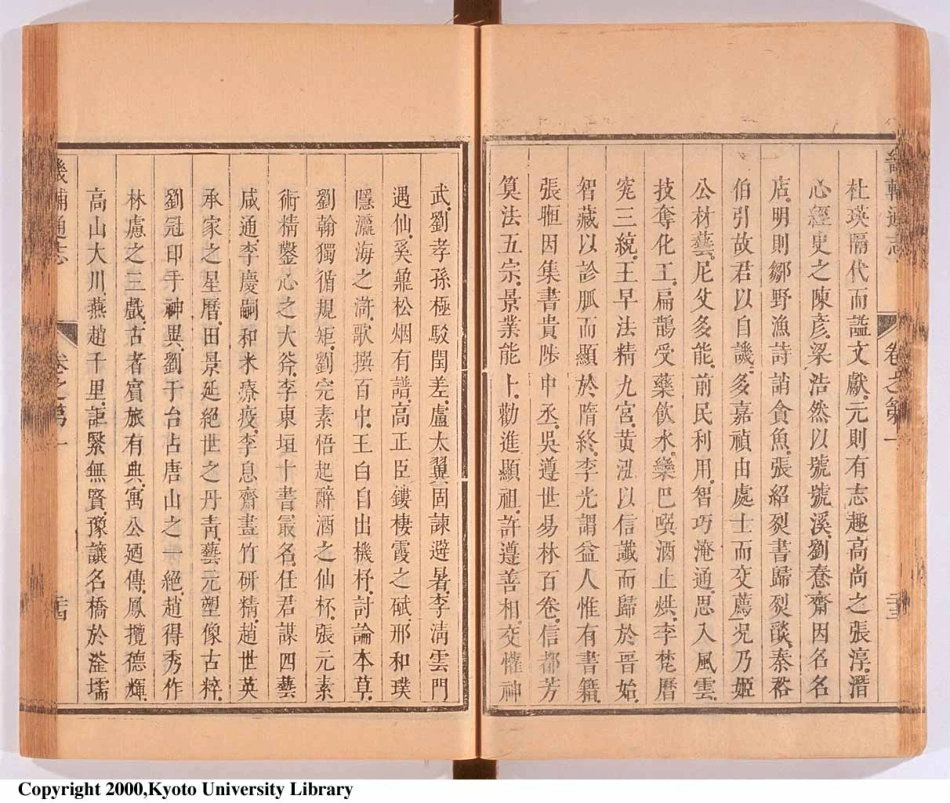 畿輔通志
卷之第一
二十三
杜瑛隔代而謚文獻.元則有志趣高尚之張淳.潛
心經史之陳彥.梁浩然以號號溪.劉惷齋因名名
店.明則鄒野漁詩誚食魚.張紹裂書歸裂談.秦裕
伯引故君以自譏.多嘉禎由處士而交薦.況乃姬
公材藝.尼父多能.前民利用.智巧淹通.思入風雲.
技奪化工.扁鵲受藥飲水.欒巴噀酒止烘.李梵曆
宪三統.王早法精九宮.黃泓以信讖而歸於晉始.
智藏以診脈而顯於隋終.李光謂益人惟有書籍.
張恒因集書貴陟中丞.吳遵世易林百卷.信都芳
算法五宗.景業能卜.勸進顯祖.許遵善相.交懽神
武.劉孝孫極駁閏差.盧太翼固諫避暑.李清雲門
遇仙.奚鼐松烟有譜.高正臣鏤棲霞之碔.邢和璞
隱瀛海之滸.歌撰百中.王白自出機杼.討論本草.
劉翰獨循規矩.劉完素悟起醉酒之仙杯.張元素
術精鑿心之大斧.李東垣十書最名.任君謀四藝
咸通.李慶嗣和米療疫.李息齋畫竹研精.趙世英
承家之星曆.田景延絕世之丹青.藝元塑像古粹.
劉冠印手神異.劉于台占唐山之一絕.趙得秀作
林慮之三戲.古者賓旅有典.寓公廼傳.鳳攬德輝.
高山大川.燕趙千里.詎緊無賢.豫讓名橋於滏壖
畿輔通志
卷之第一
二十四
Copyright 2000,Kyoto University Library